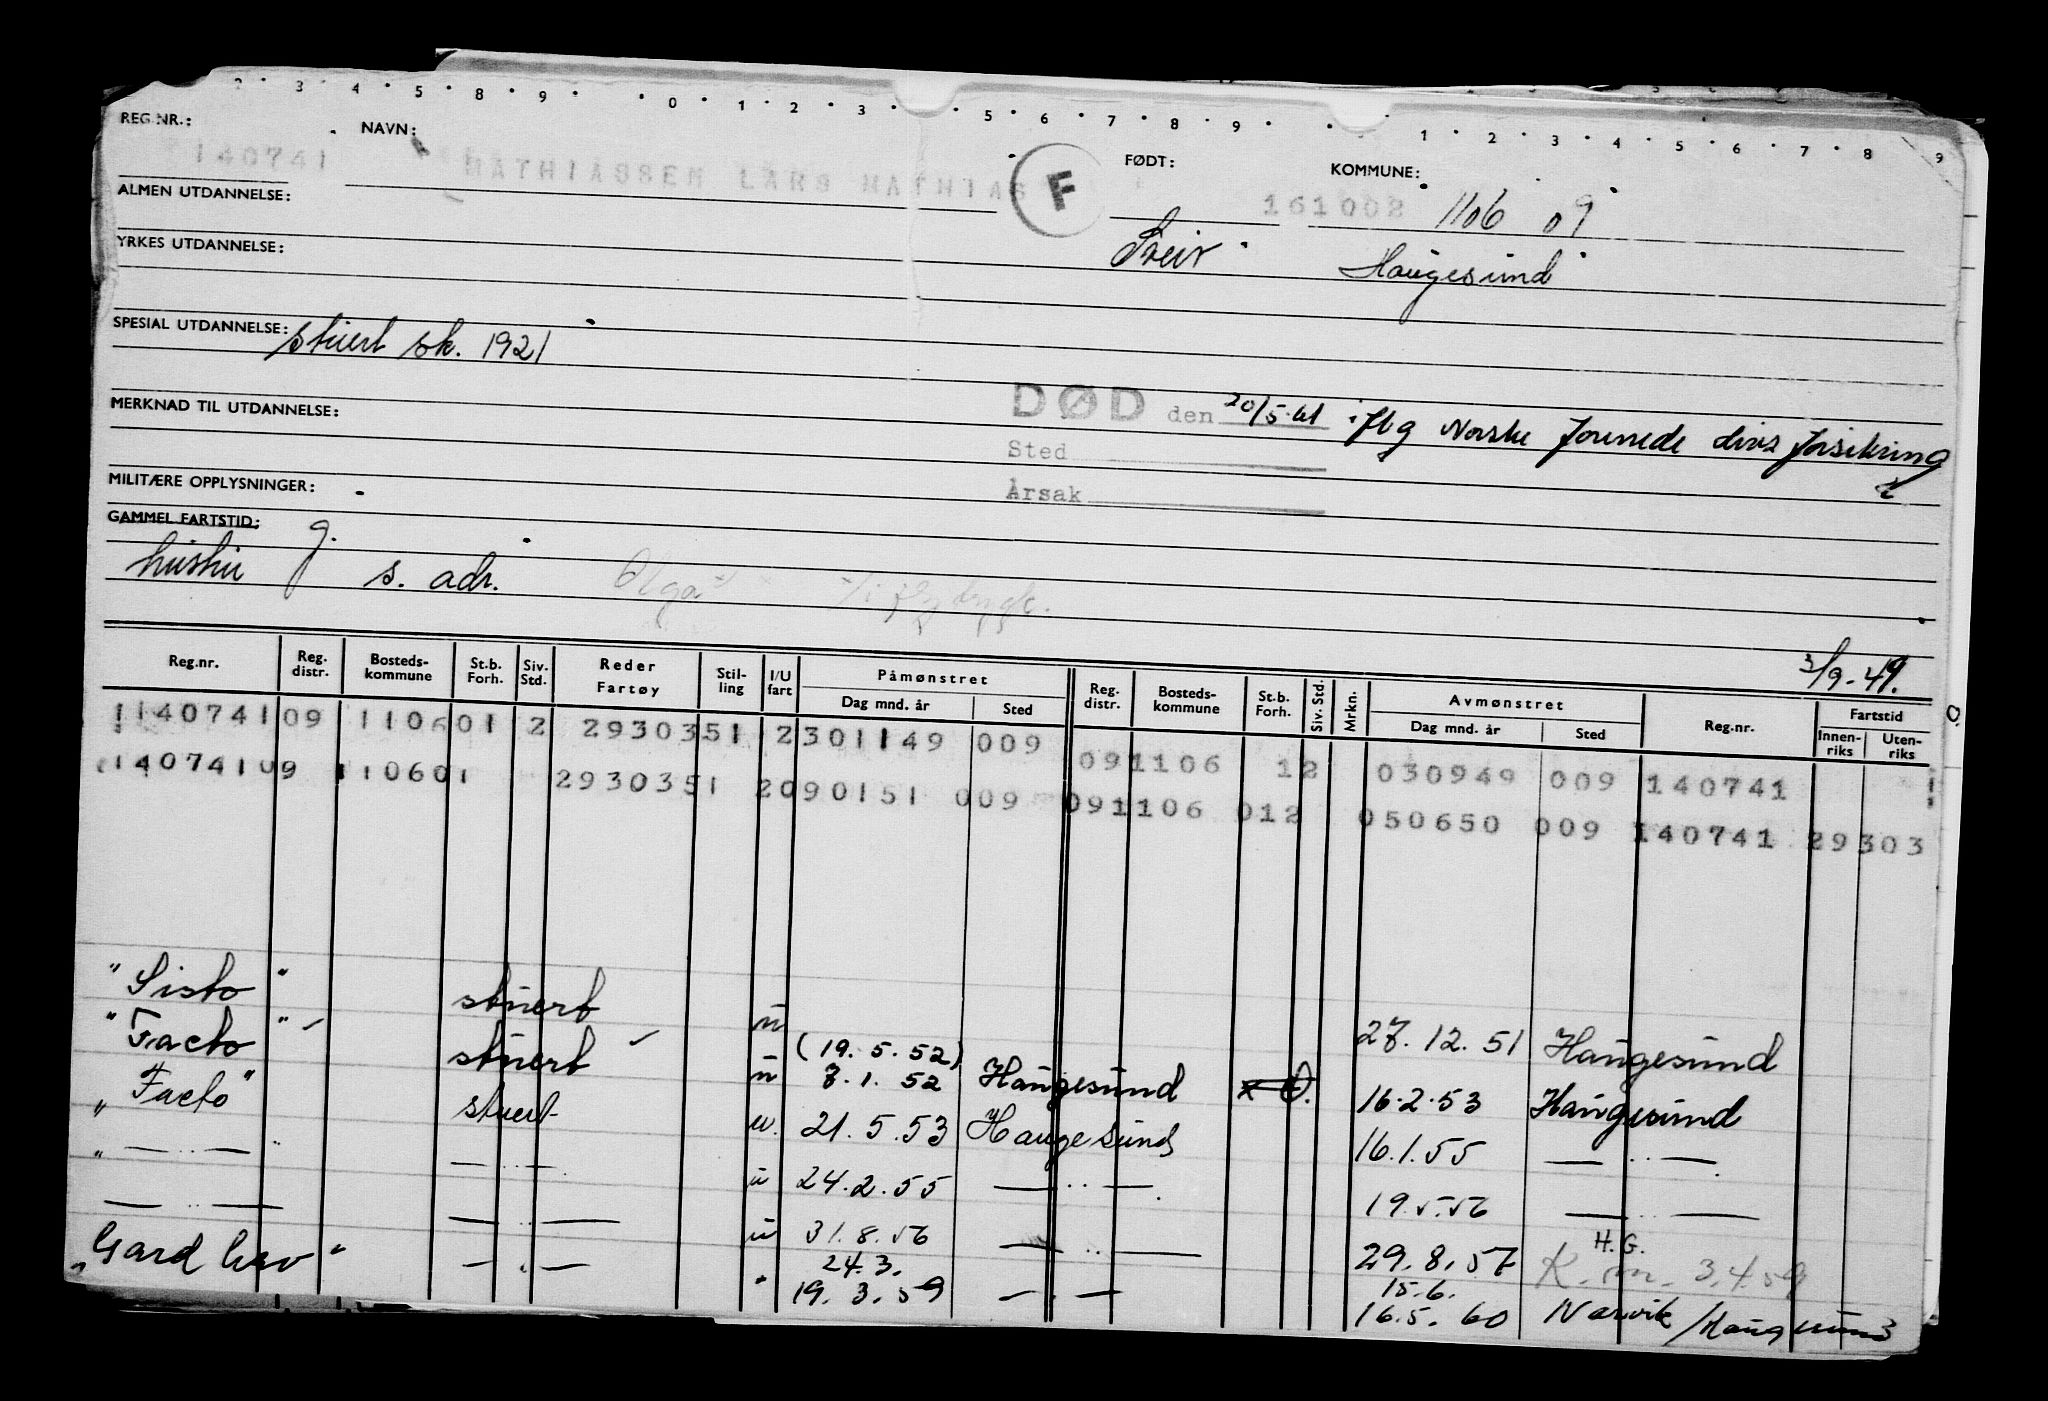 2 · 3 · 4 · 5 · 8 · 9 · · 0 · 1 · 2 · 3 · · 5 · 6 · 7 · 8 · 9 · · · 1 · 2 · 3 · 4 · 5 · 6 · 7 · 8 · 9
REG NR.: NAVN: FØDT: KOMMUNE:
140741 MATHIASSEN LARS MATHIAS F 161002 1106 09
ALMEN UTDANNELSE:
YRKES UTDANNELSE: Haugesund
SPESIAL UTDANNELSE: stuert sk. 1921
MERKNAD TIL UTDANNELSE:
DØD den 20/5.61 iflg Norske forenede livs forsikring
Sted
MILITÆRE OPPLYSNINGER:
Årsak
GAMMEL FARTSTID: g.
hustru s. adr. Olga
3/9-49.
Reg.nr. Reg. distr. Bosteds-kommune St.b. Forh. Siv. Std. Reder Fartøy Stil-ling I/U fart Påmønstret Dag mnd. år Sted Reg. distr. Bosteds-kommune St.b. Forh. Siv. Std. Mrkn. Avmønstret Dag mnd. år Sted Reg.nr. Fartstid Innen-riks Uten-riks
140741 09 1106 01 2 2930351 2 301149 009 09 1106 12 030949 009 140741
140741 09 1106 01 2930351 2 090151 009 09 1106 012 050650 009 140741 29303
"Sisto" stuert u 27.12.51 Haugesund
(19.5.52)
"Facto" stuert u 7.1.52 Haugesund 16.2.53 Haugesund
"Facto" stuert u. 21.5.53 Haugesund 16.1.55 — " —
" — " — " — " — u 24.2.55 — " — 19.5.56 — " —
— " — — " — u 31.8.56 — " — 29.8.57 H.G. K.m. 3.4.59
24.3. 15.6.
— " — " 19.3.59 — " — 16.5.60 Narvik / Haugesund